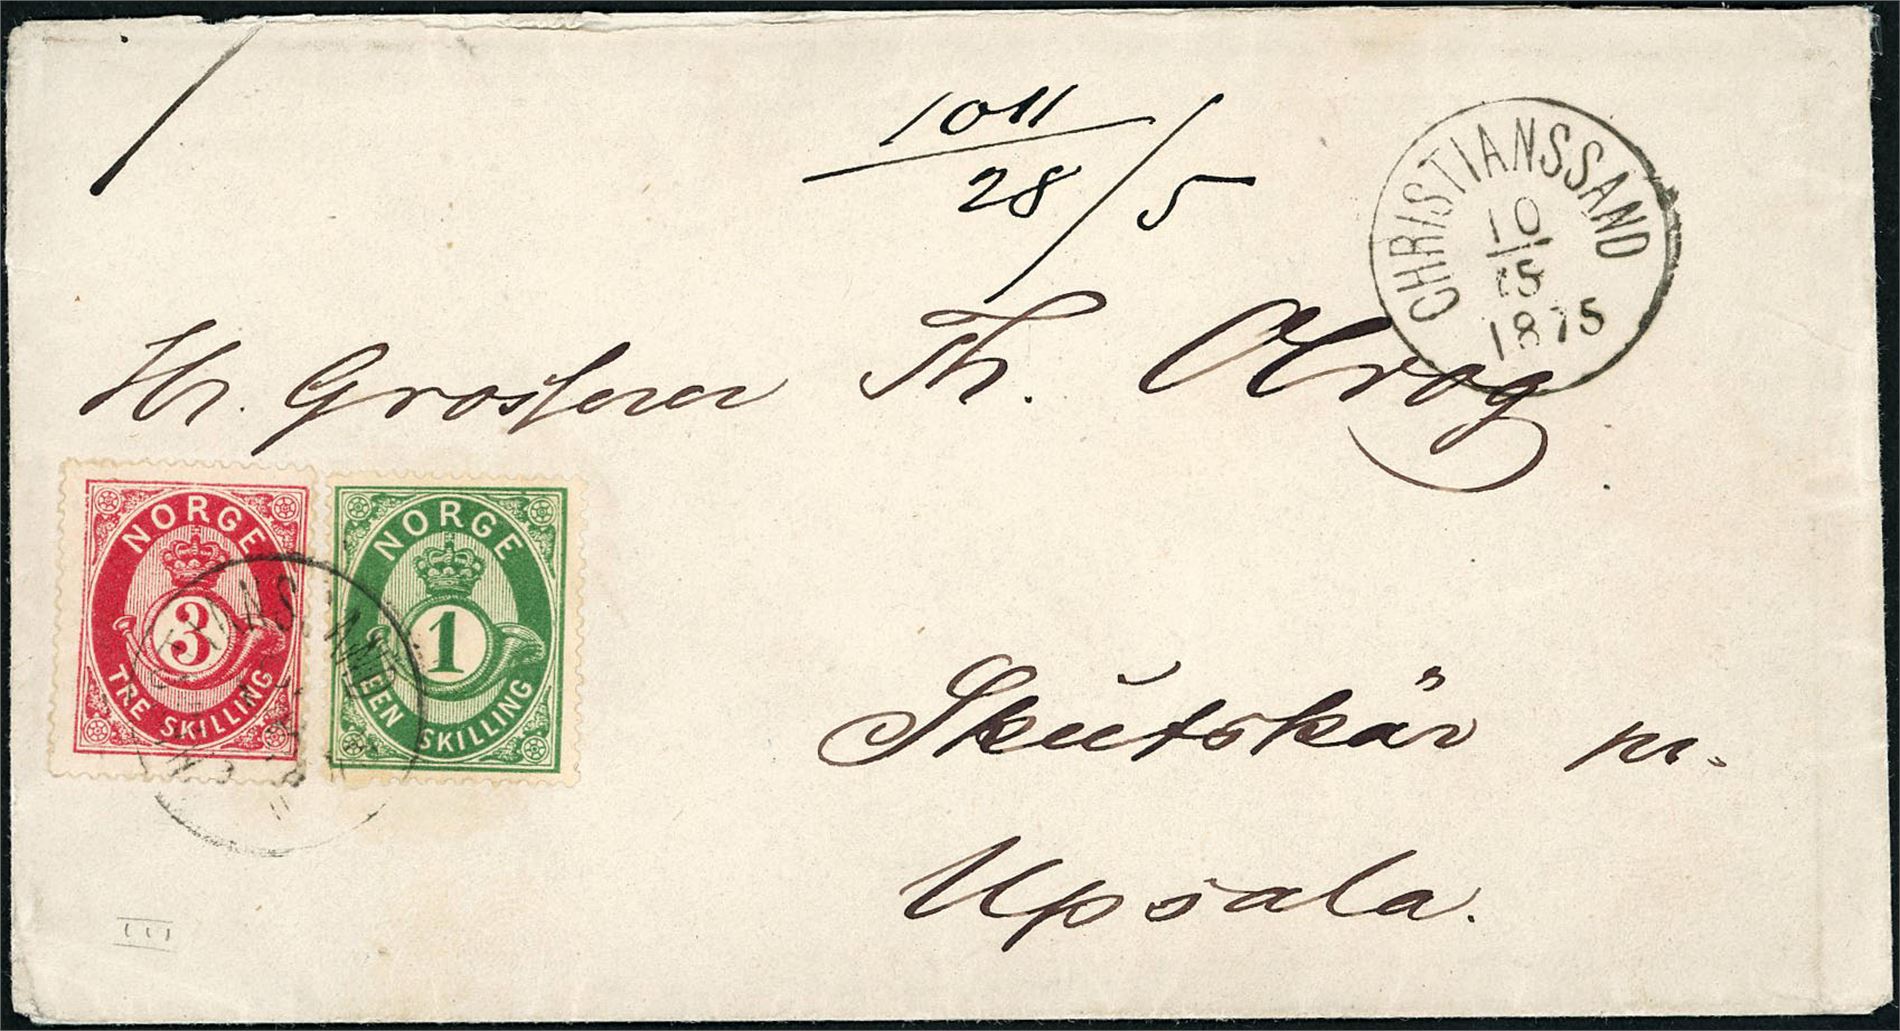 1011
28/5
CHRISTIANSSAND
10
5
1875
Hr. Grosserer Th. Olrog
NORGE
3
TRE SKILLING
NORGE
1
EEN SKILLING
Skutskär pr.
Upsala.